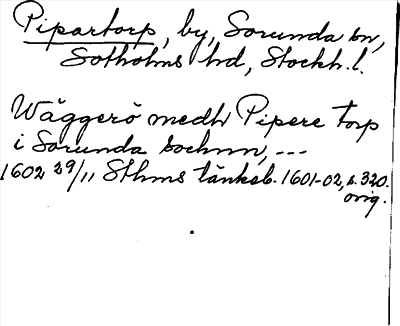 Pipartorp, by, Sorunda sn,
Sotholms hd, Stockh. l.
Wäggerö medh Pipere torp
i Sorunda sochnn, ---
1602 29/11 Sthms tänkeb. 1601-02, s. 320.
orig.